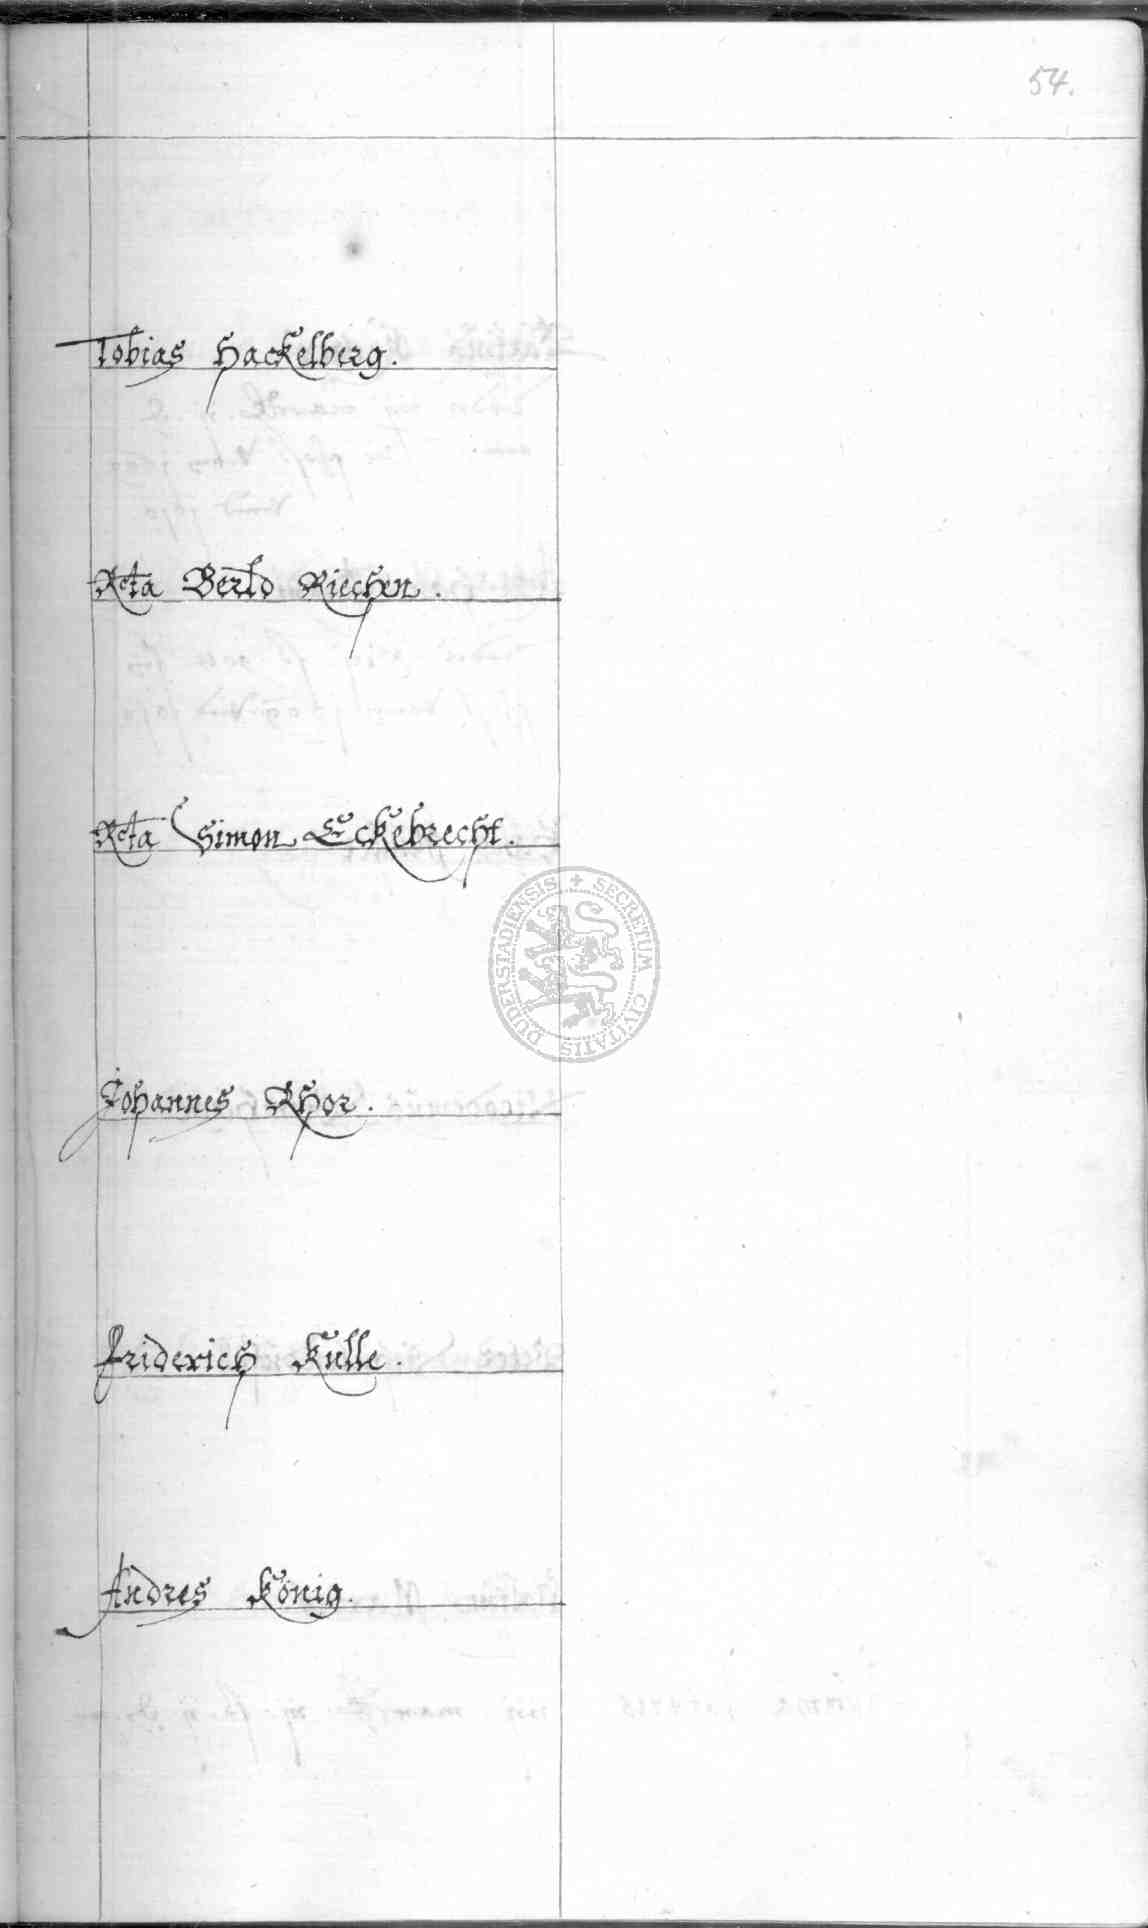 54.
Tobias Hackelberg.
Rcta Berld Riechen.
Rcta Simon Eckebrecht.
DUDERSTADIENSIS + SECRETUM CIVITATIS
Johannes Rhor.
Friderich Kulle.
Andres König.